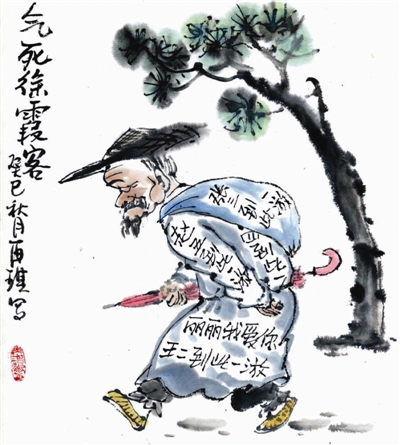 气死徐霞客
癸巳秋月再琪写
张三到此一游
赵五到此一游
丽丽我爱你
王二到此一游